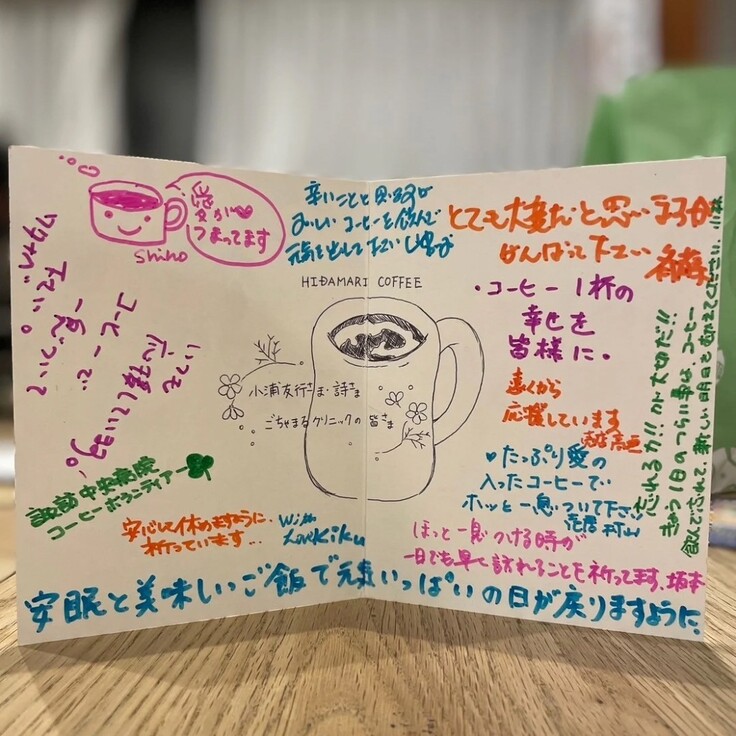 愛が♥
つまってます
Shiho
辛いことと思いますが
おいしいコーヒーを飲んで
元気を出して下さい
とても大変だと思いますが
がんばって下さい
HIDAMARI COFFEE
小浦友行さま・詩さま
ごちゃまるクリニックの皆さま
いつも
応援しています
コーヒーで
一息ついて
下さい。
・コーヒー1杯の
幸せを
皆様に。
遠くから
応援しています
♥たっぷり愛の
入ったコーヒーで
ホッと一息ついて下さい
村山
忘れる力!!が大切だ!!
きょう1日のつらい事は、コーヒー
飲んで忘れて、新しい明日を
諏訪中央病院
コーヒーボランティアー
安心して休めますように、
祈っています…
With
Love Kiku
ほっと一息つける時が
一日でも早く訪れることを祈ってます、坂本
安眠と美味しいご飯で元気いっぱいの日が戻りますように。